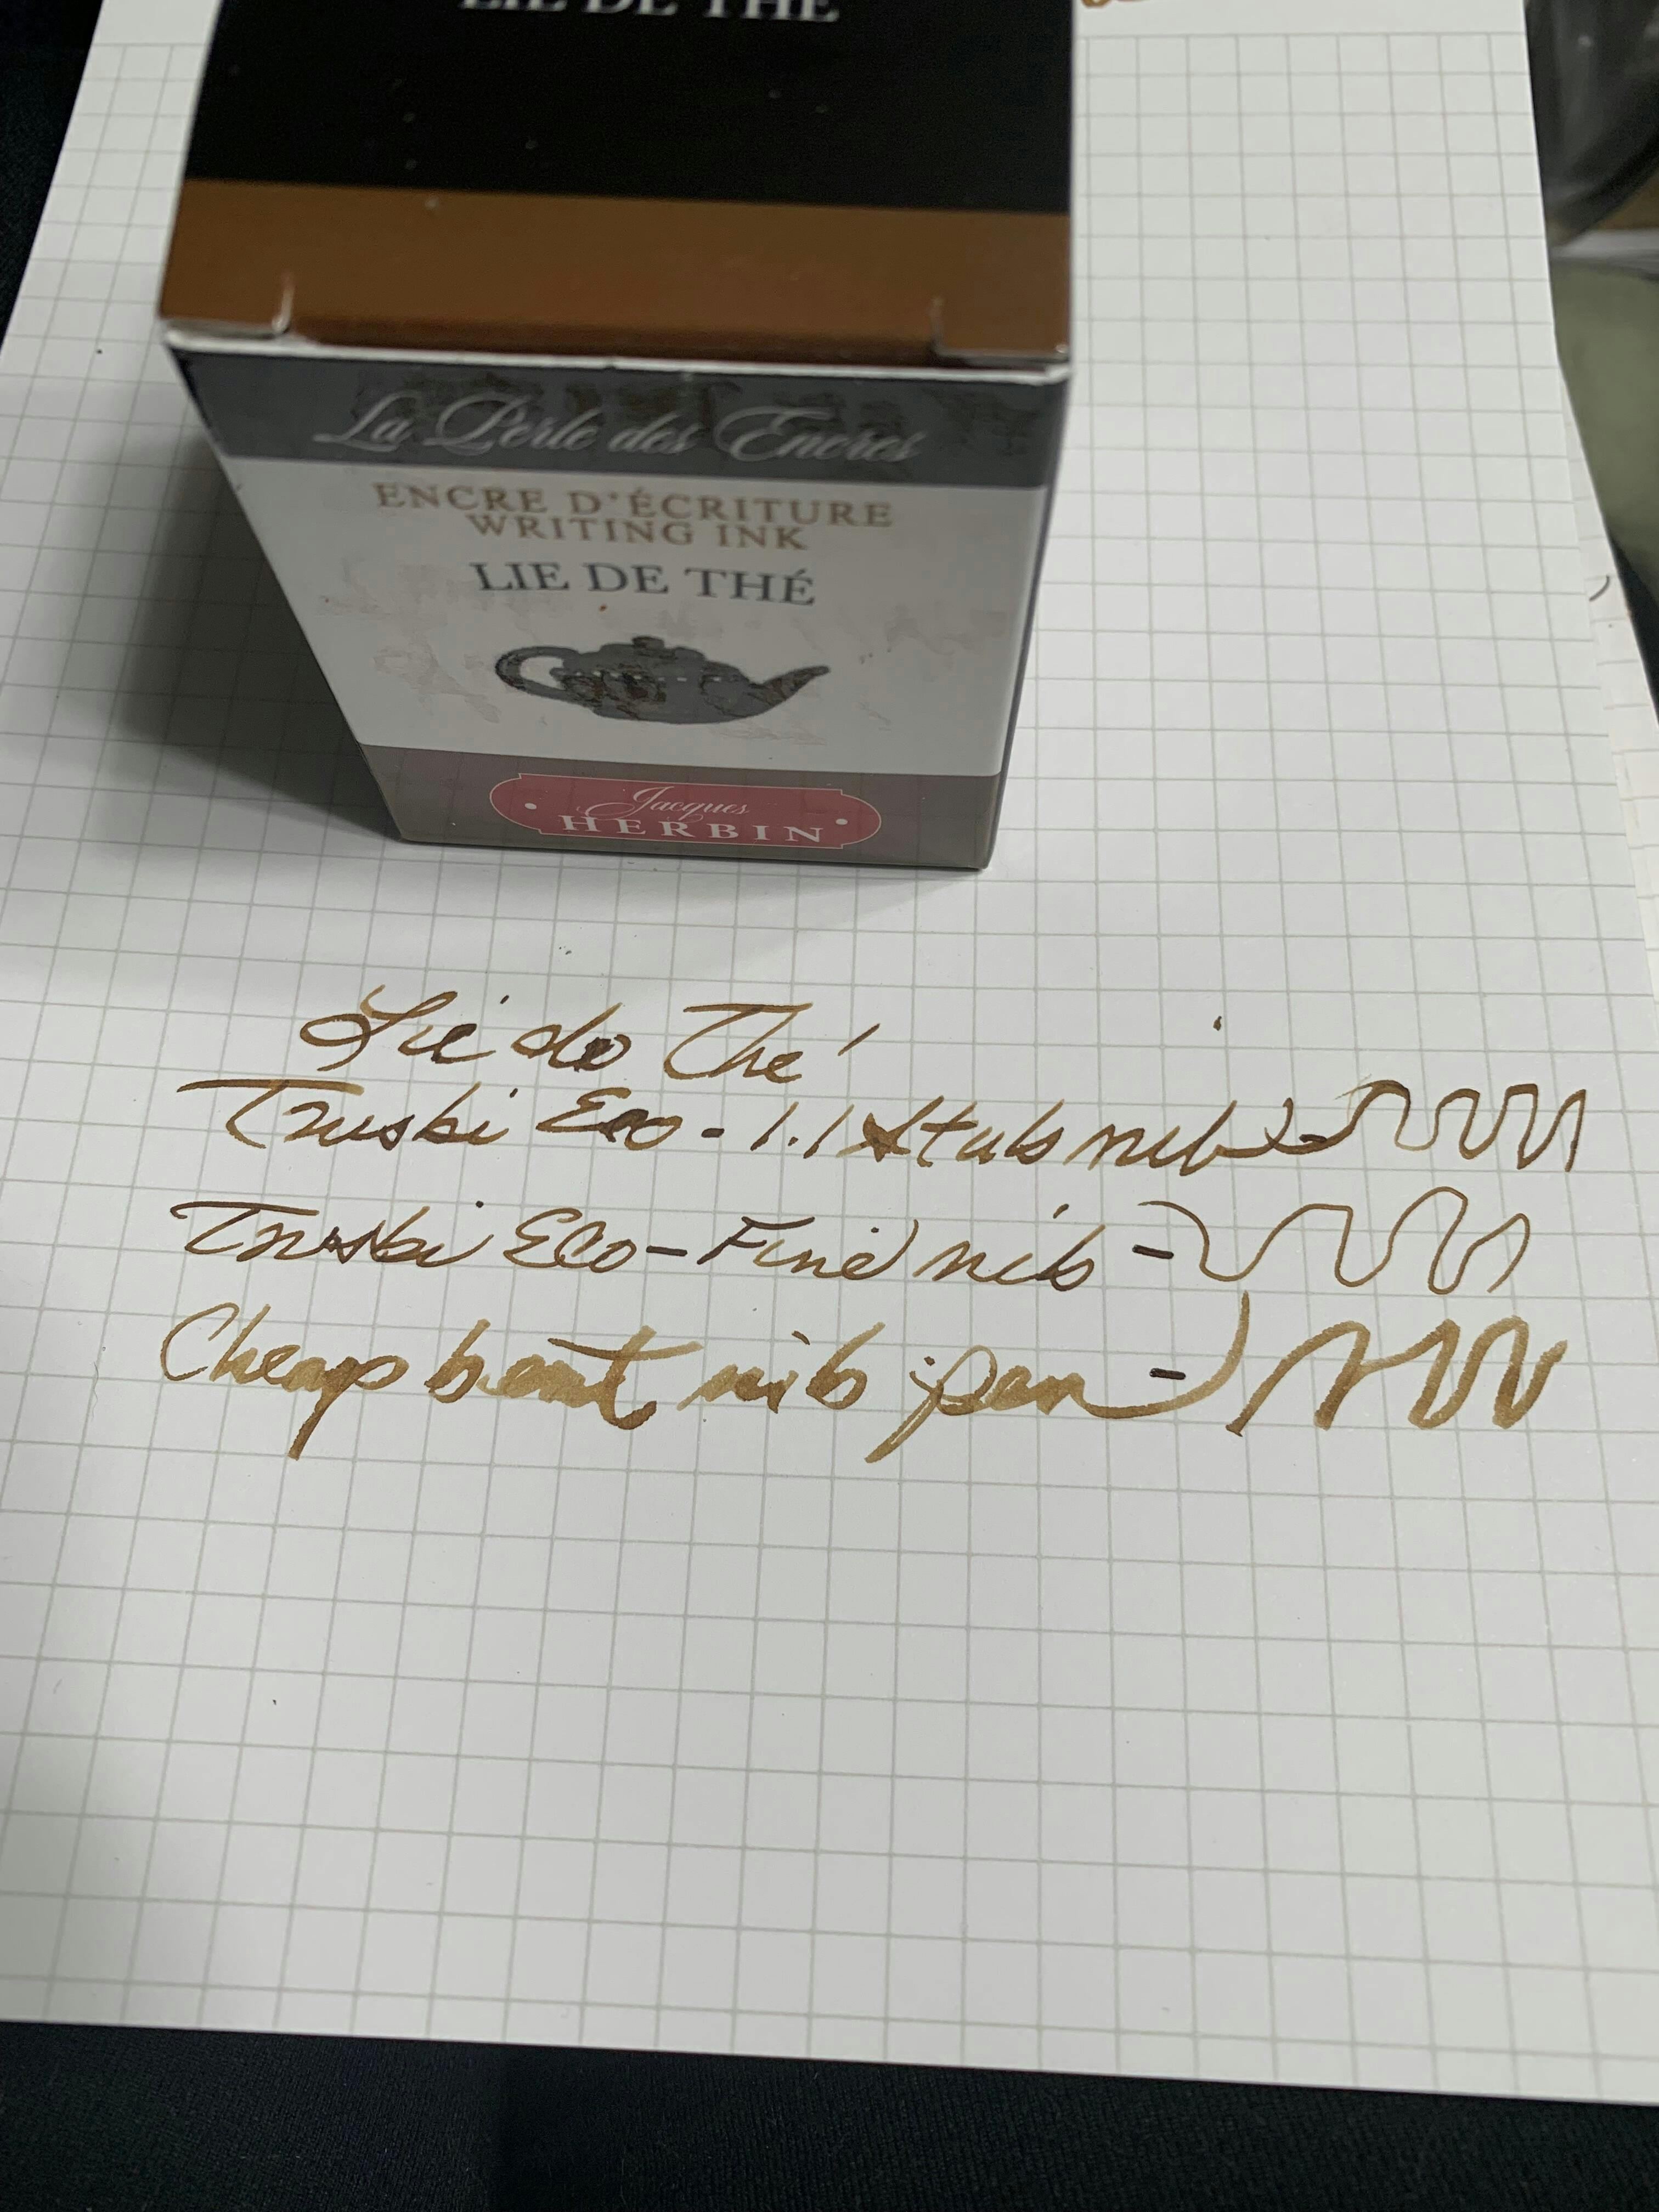 LIE DE THÉ
La Perle des Encres
ENCRE D'ÉCRITURE
WRITING INK
LIE DE THÉ
Jacques
HERBIN
Lie de Thé
Twsbi Eco - 1.1 Stub nib -
Twsbi Eco - Fine nib -
Cheap bent nib pen -